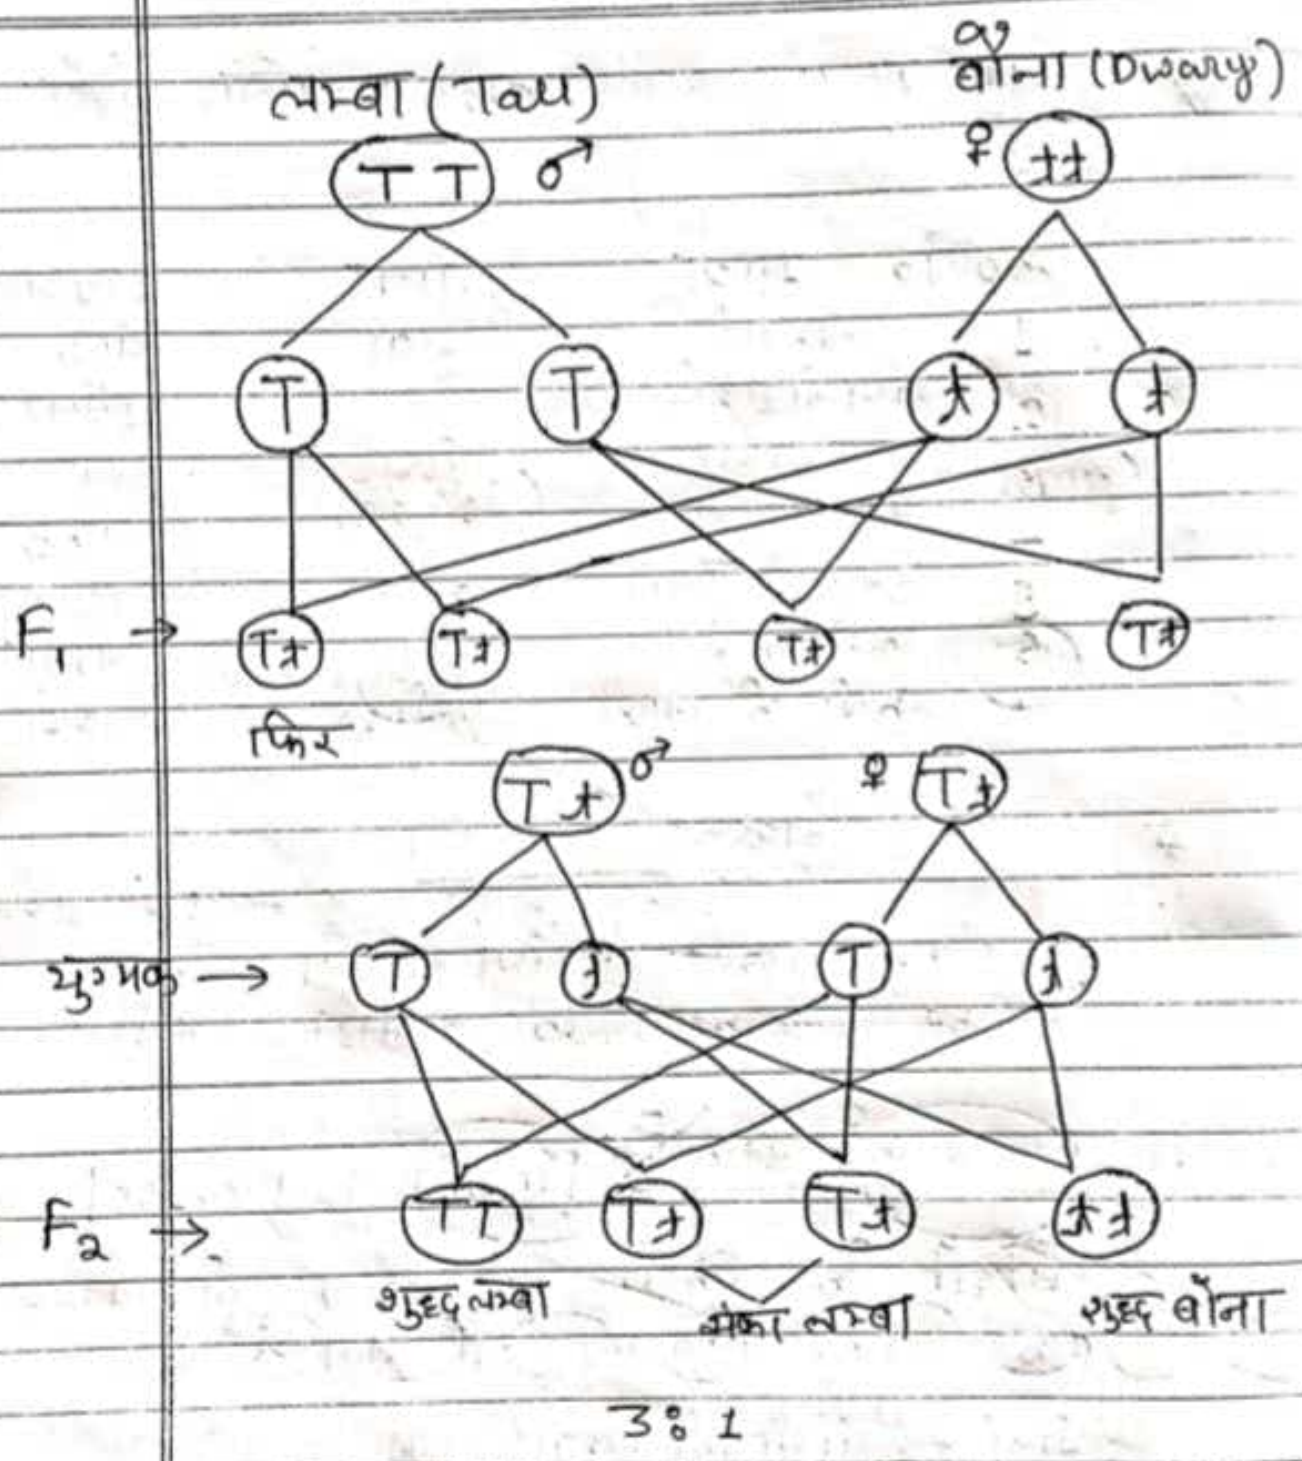 लम्बा (Tall)
बौना (Dwary)
T T ♂
♀ tt
T T t t
F₁ → Tt Tt Tt Tt
फिर
Tt ♂ ♀ Tt
युग्मक → T t T t
F₂ → TT Tt Tt tt
शुद्ध लम्बा लम्बा शुद्ध बौना
3:1